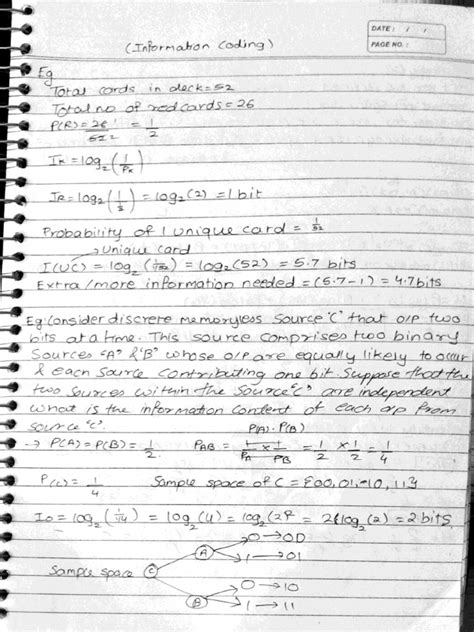 DATE: / /
PAGE NO.:
(Information Coding)
Eg
Total cards in deck = 52
Total no of red cards = 26
P(R) = 26/52 = 1/2
Ik = log2 (1/Pk)
IR = log2 (1/½) = log2 (2) = 1 bit
Probability of 1 unique card = 1/52
→ Unique card
I(UC) = log2 (1/1/52) = log2 (52) = 5.7 bits
Extra/more information needed = (5.7-1) = 4.7 bits
Eg: Consider discrete memoryless source 'C' that o/p two
bits at a time. This source comprises two binary
sources "A" & "B" whose o/p are equally likely to occur
& each source contributing one bit. Suppose that the
two sources within the source "C" are independent
what is the information content of each o/p from
source 'C'.
P(A)·P(B)
→ P(A) = P(B) = 1/2. PAB = 1/PA × 1/PB = 1/2 × 1/2 = 1/4
P(C) = 1/4 Sample space of C = {00, 01, 10, 11}
Io = log2 (1/1/4) = log2 (4) = log2 (2)² = 2 log2 (2) = 2 bits
Sample space C
A 0 → 00
1 → 01
B 0 → 10
1 → 11